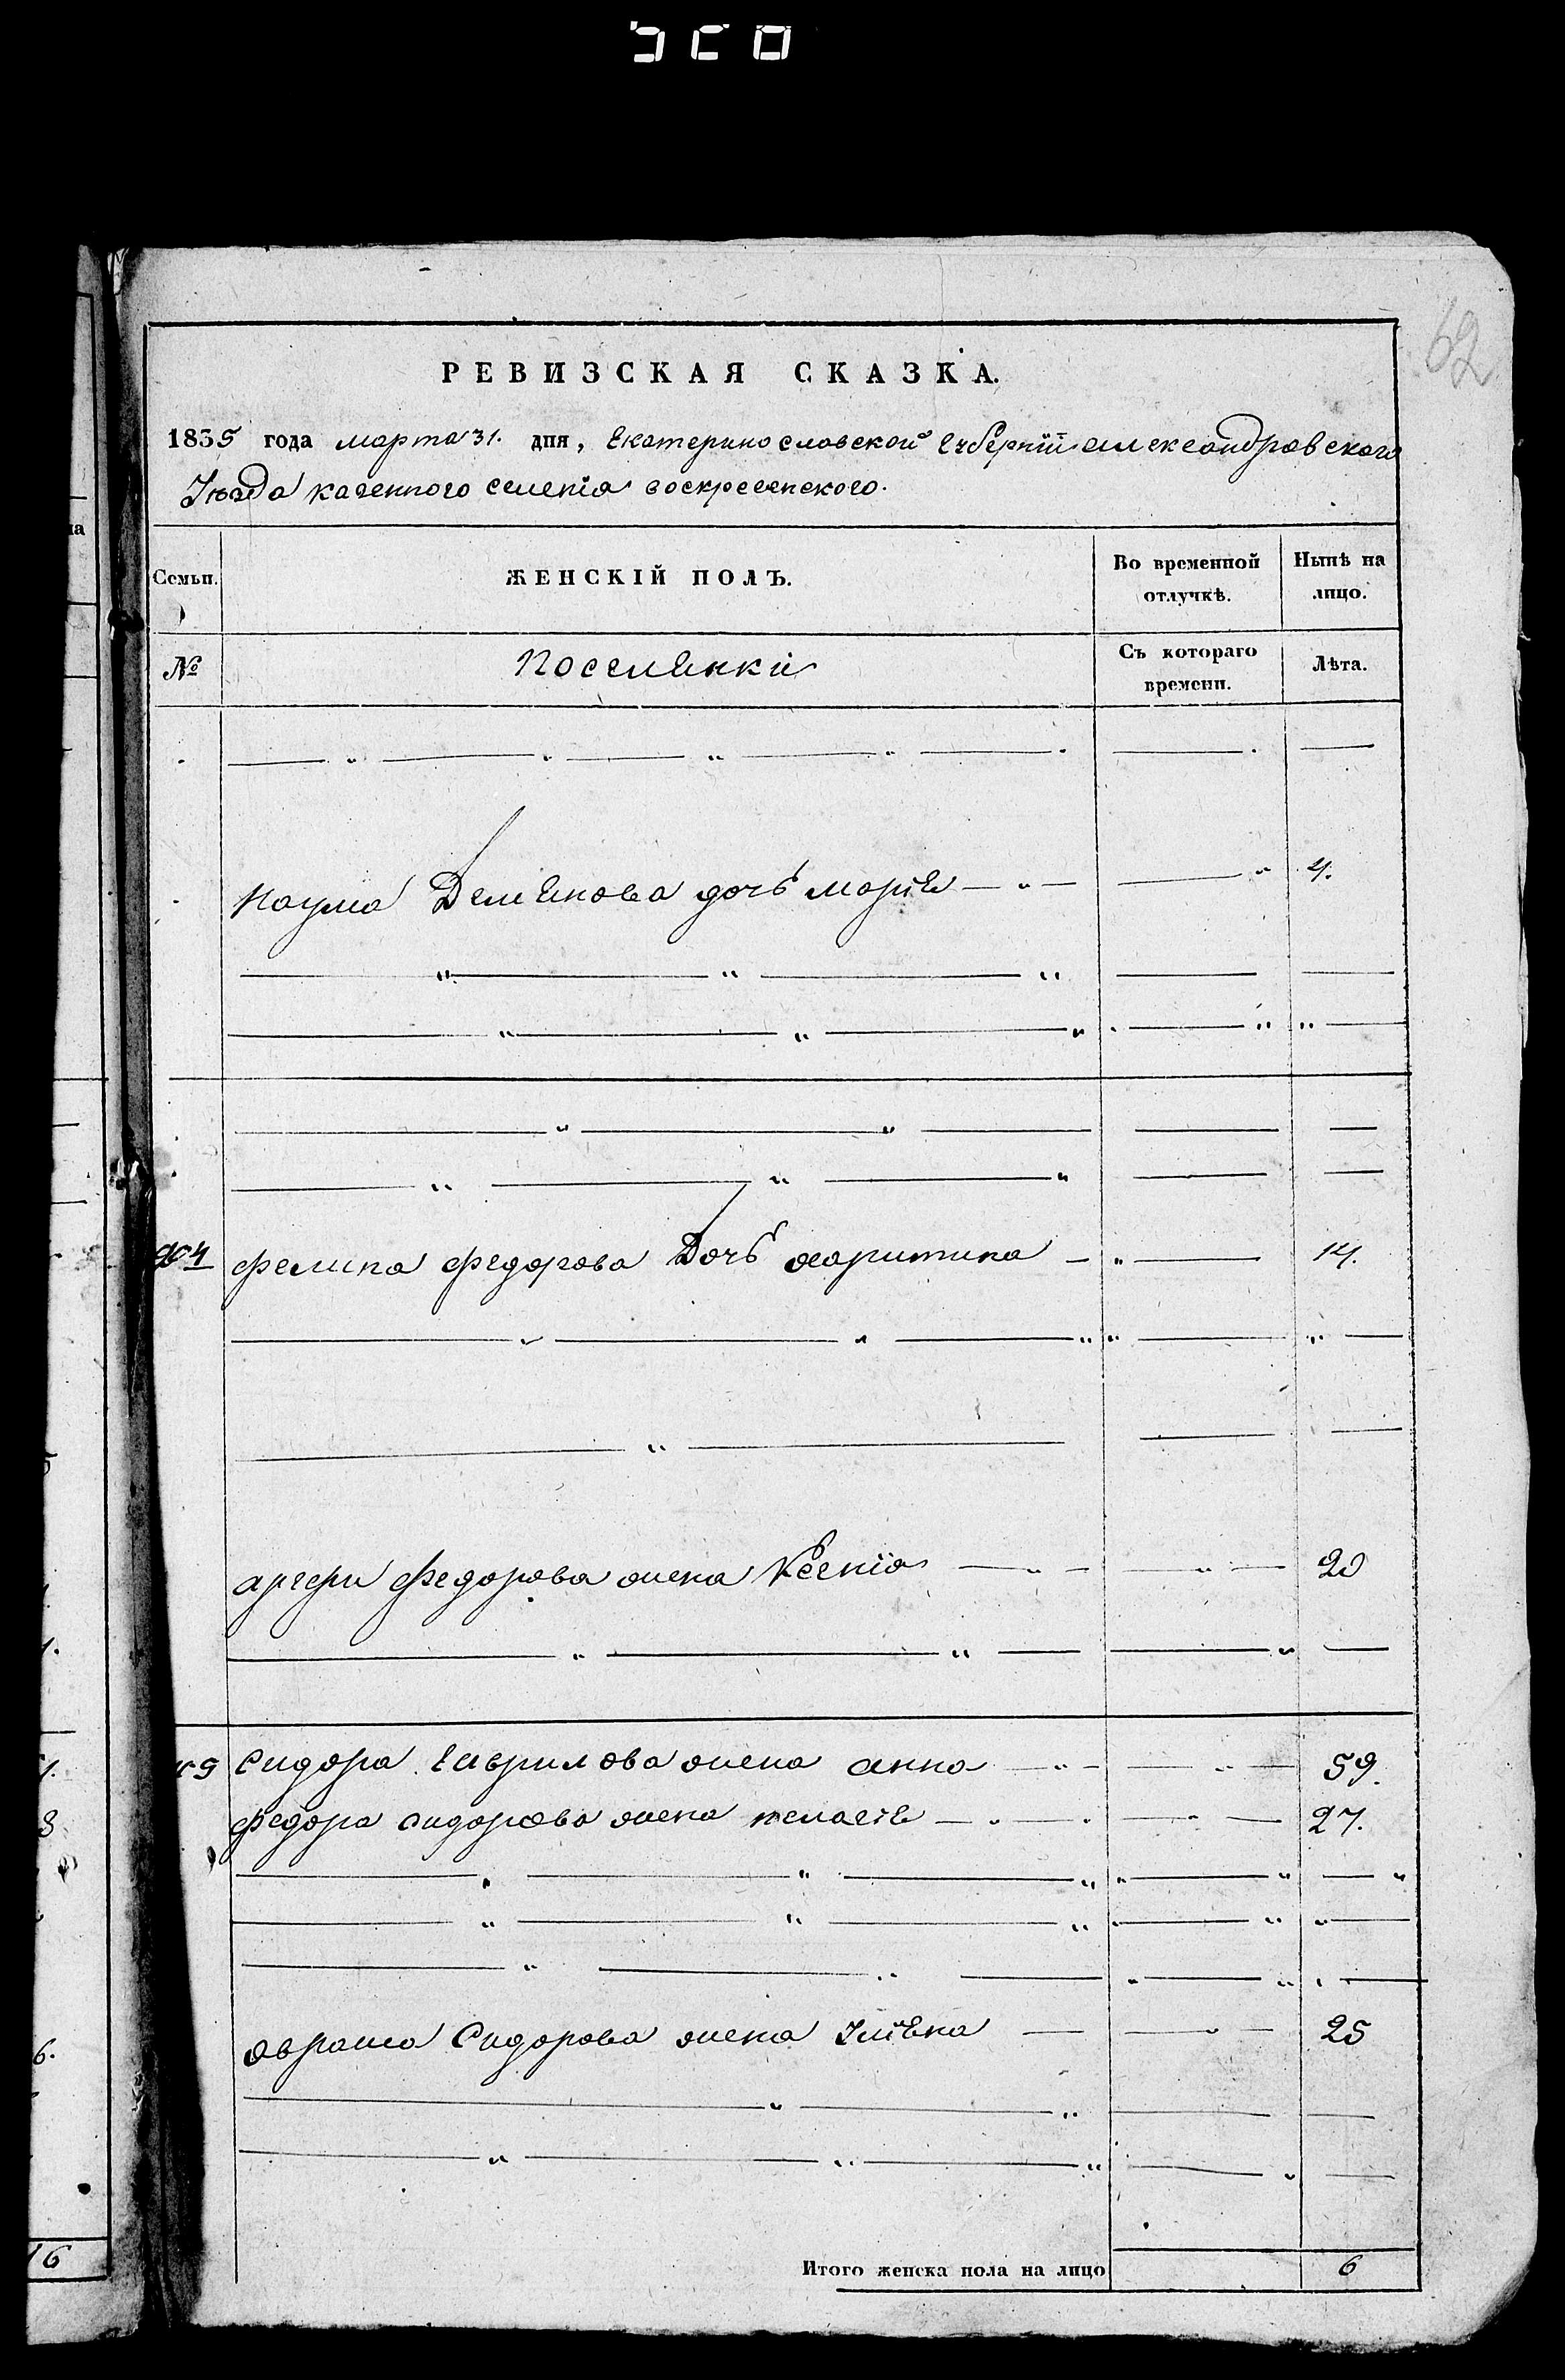 62
РЕВИЗСКАЯ СКАЗКА.
1835 года марта 31. дня, Екатеринославской Губерніи александровского
Уезда казенного селенія воскресенского.
Семьи.
ЖЕНСКІЙ ПОЛЪ.
Во временной отлучкѣ.
Нынѣ на лицо.
№
Поселянки
Съ котораго времени.
Лѣта.
наума Демянова дочь марія 4.
филипа федорова Дочь харитина 14.
федорова жена Ксенія 20
Сидора Гаврилова жена анна 59.
федора сидорова жена пелагія 27.
аврама Сидорова жена уліяна 25
Итого женска пола на лицо 6
16